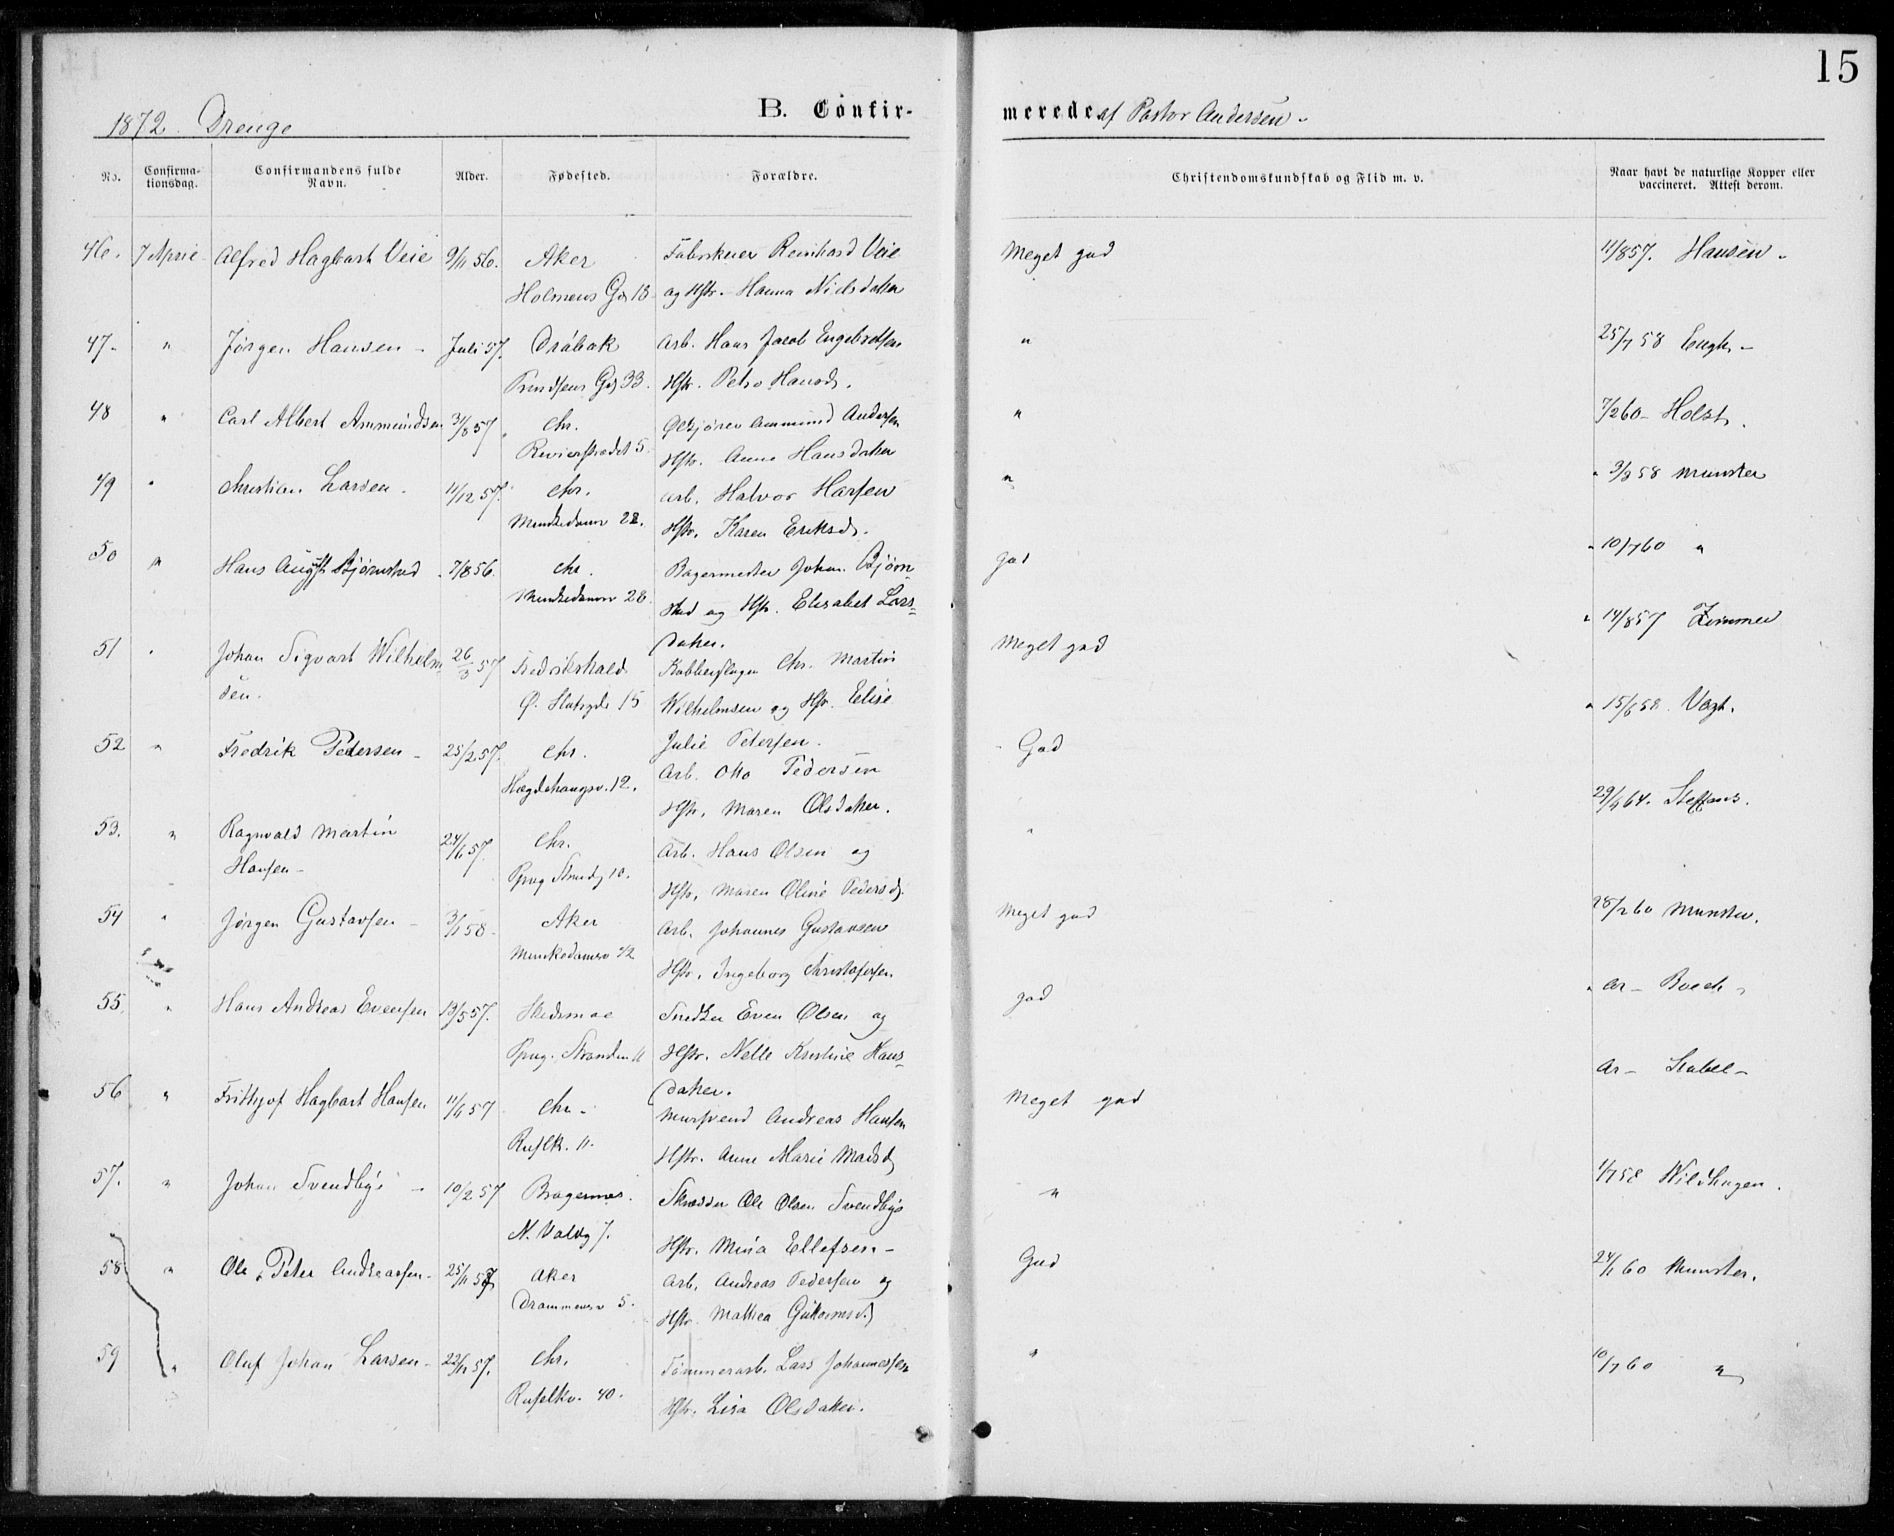 15
1872. Drenge
B. Confir-
merede af Pastor Andersen.
No.
Confirma-
tionsdag.
Confirmandens fulde
Navn.
Alder.
Fødested.
Forældre.
Christendomskundskab og Flid m. v.
Naar havt de naturlige Kopper eller
vaccineret. Attest derom.
46. 7 April Alfred Hagbart Veie 9/11 56. Aker Fabrikeier Reinhard Veie Meget god 11/8 57. Hansen.
Holmens Gd 18 og Hstr. Hanna Nielsdatter
47. " Jørgen Hansen Juli 57. Drøbak Arb. Hans Jacob Engebretsen " 25/7 58 Engh.
Gd 33. Hstr. Petro Hansd.
48 " Carl Albert Ammundsen 31/8 57 Chr. Ammund Andersen " 7/2 60 Holst.
Revierstrædet 5. Hstr. Anne Hansdatter
49 " Christian Larsen. 11/12 57. Chr. Arb. Halvor " 3/8 58 Munster
Munkedamsv 28. Hstr. Karen Eriksd.
50 " Hans August Bjørnstad 7/8 56. Chr. Bagermester Johan Bjørn- god 10/7 60 "
Munkedamsv 28. stad og Hstr. Elisabet Lars-
datter.
51 " Johan Sigvart Wilhelm- 26/3 57 Fredrikshald Kobberslager Chr. Martin Meget god 14/8 57 Zimmer
sen. Ø. Slotsgd 15 Wilhelmsen og Hstr. Elise
Julie Petersen.
52 " Fredrik Pedersen 25/2 57. Chr. Arb. Otto Pedersen God 15/6 58. Vogt.
Hægdehaugsv. 12. Hstr. Maren Olsdatter.
53. " Ragnvald Martin 24/6 57. Chr. Arb. Hans Olsen og " 29/9 64. Steffens.
Hansen Pipvg Strandg 10. Hstr. Maren Oline Pedersd.
54 " Jørgen Gustavsen 3/1 58. Aker Arb. Johannes Gustavsen Meget god 28/2 60 Munster.
Munkedamsv 42 Hstr. Ingeborg Christofersen.
55. " Hans Andreas Evensen 13/5 57. Skedsmoe Snedker Even Olsen og god ar Boeck
Pipvg. Stranden 11 Hstr. Nelle Kristine Hans-
datter.
56 " Frithjof Hagbart Hansen 11/11 57 Chr. Mursvend Andreas Hansen Meget god ar Stabel
Rusløk. 11. Hstr. Anne Marie Madsd
57. " Johan Svendby 10/2 57 Bragernes. Skrædder Ole Olsen Svendby " 1/7 58 Wildhagen.
N. Voldg 7. Hstr. Mina Ellefsen
58 " Ole Peter Andreassen 25/11 57 Aker Arb. Andreas Pedersen og God 24/1 60 Munster.
Drammensv 5. Hstr. Mathea
59 " Oluf Johan Larsen 22/11 57. Chr. Tømmerarb. Lars Johannessen " 10/7 60 "
Rusløkv. 40. Hstr. Lisa Olsdatter.